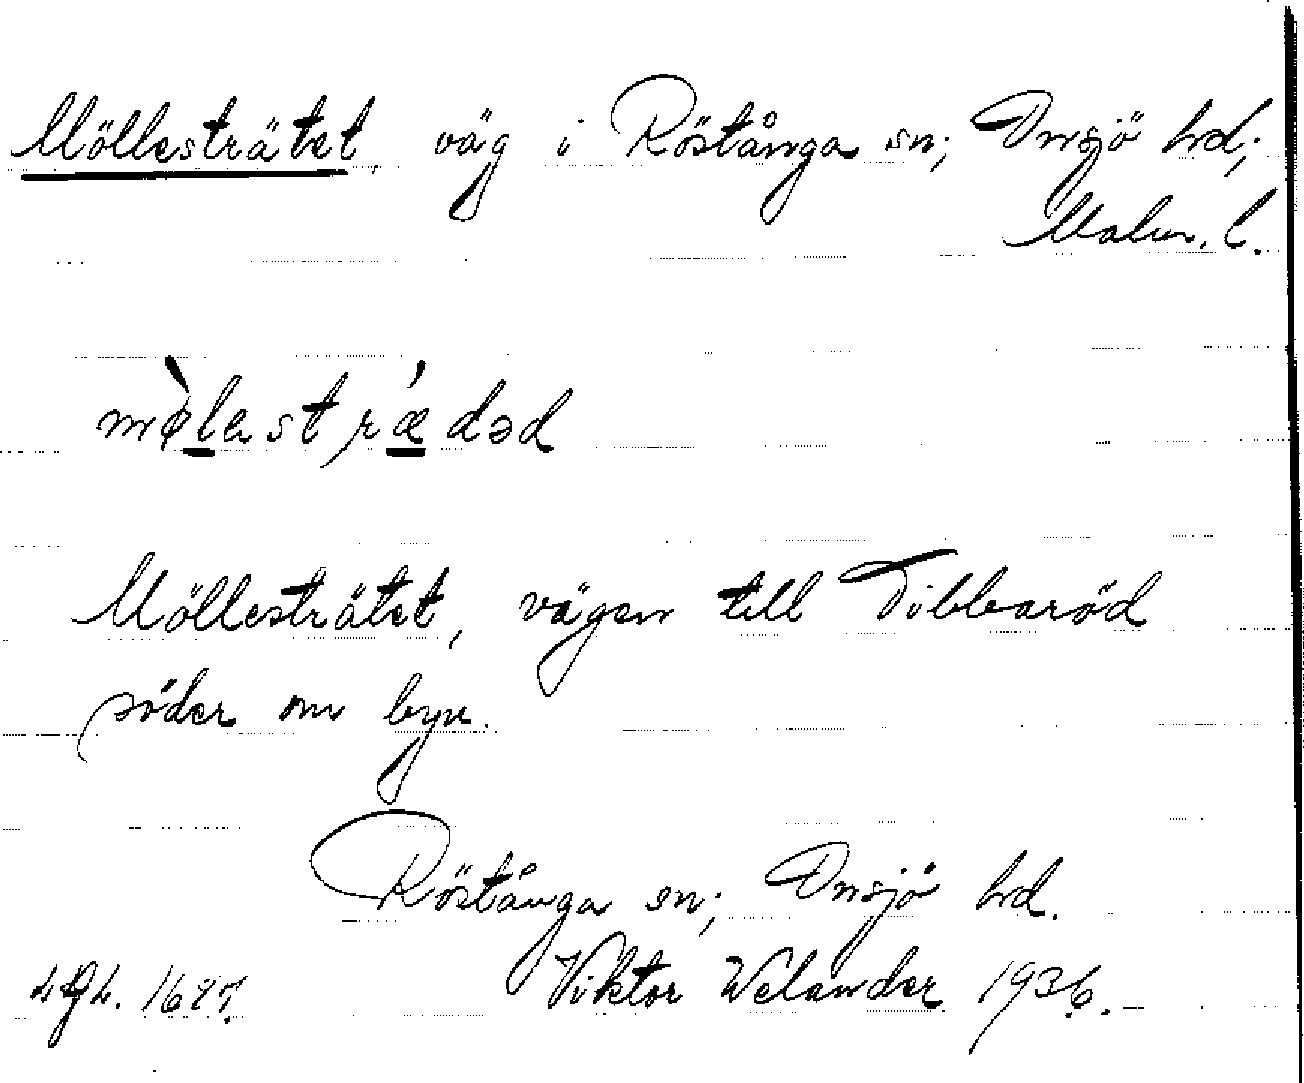 Möllesträtet, väg i Röstånga sn; Onsjö hd;
Malm. l.
mø̀lestrǽdəd
Möllesträtet, vägen till Tibbaröd
söder om byn.
Röstånga sn; Onsjö hd.
Viktor Welander 1936.